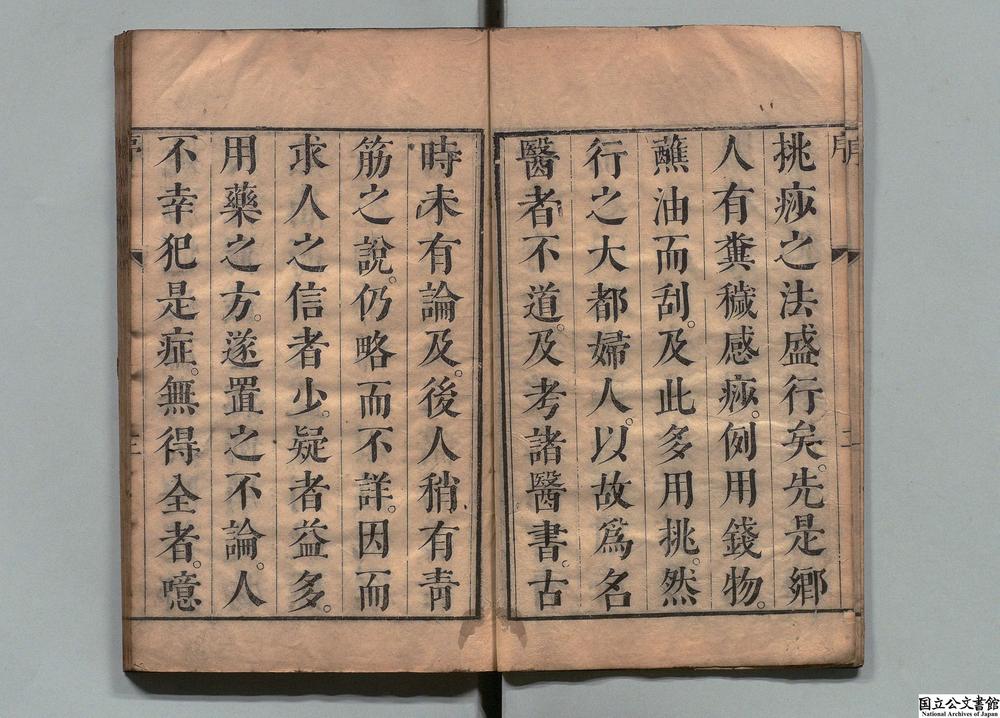 挑痧之法盛行矣。先是鄉
人有糞穢感痧。例用錢物。
蘸油而刮。及此多用挑。然
行之大都婦人。以故爲名
醫者不道。及考諸醫書。古
時未有論及。後人稍有靑
筋之說。仍略而不詳。因而
求人之信者少。疑者益多。
用藥之方。遂置之不論。人
不幸犯是症。無得全者。噫
国立公文書館
National Archives of Japan